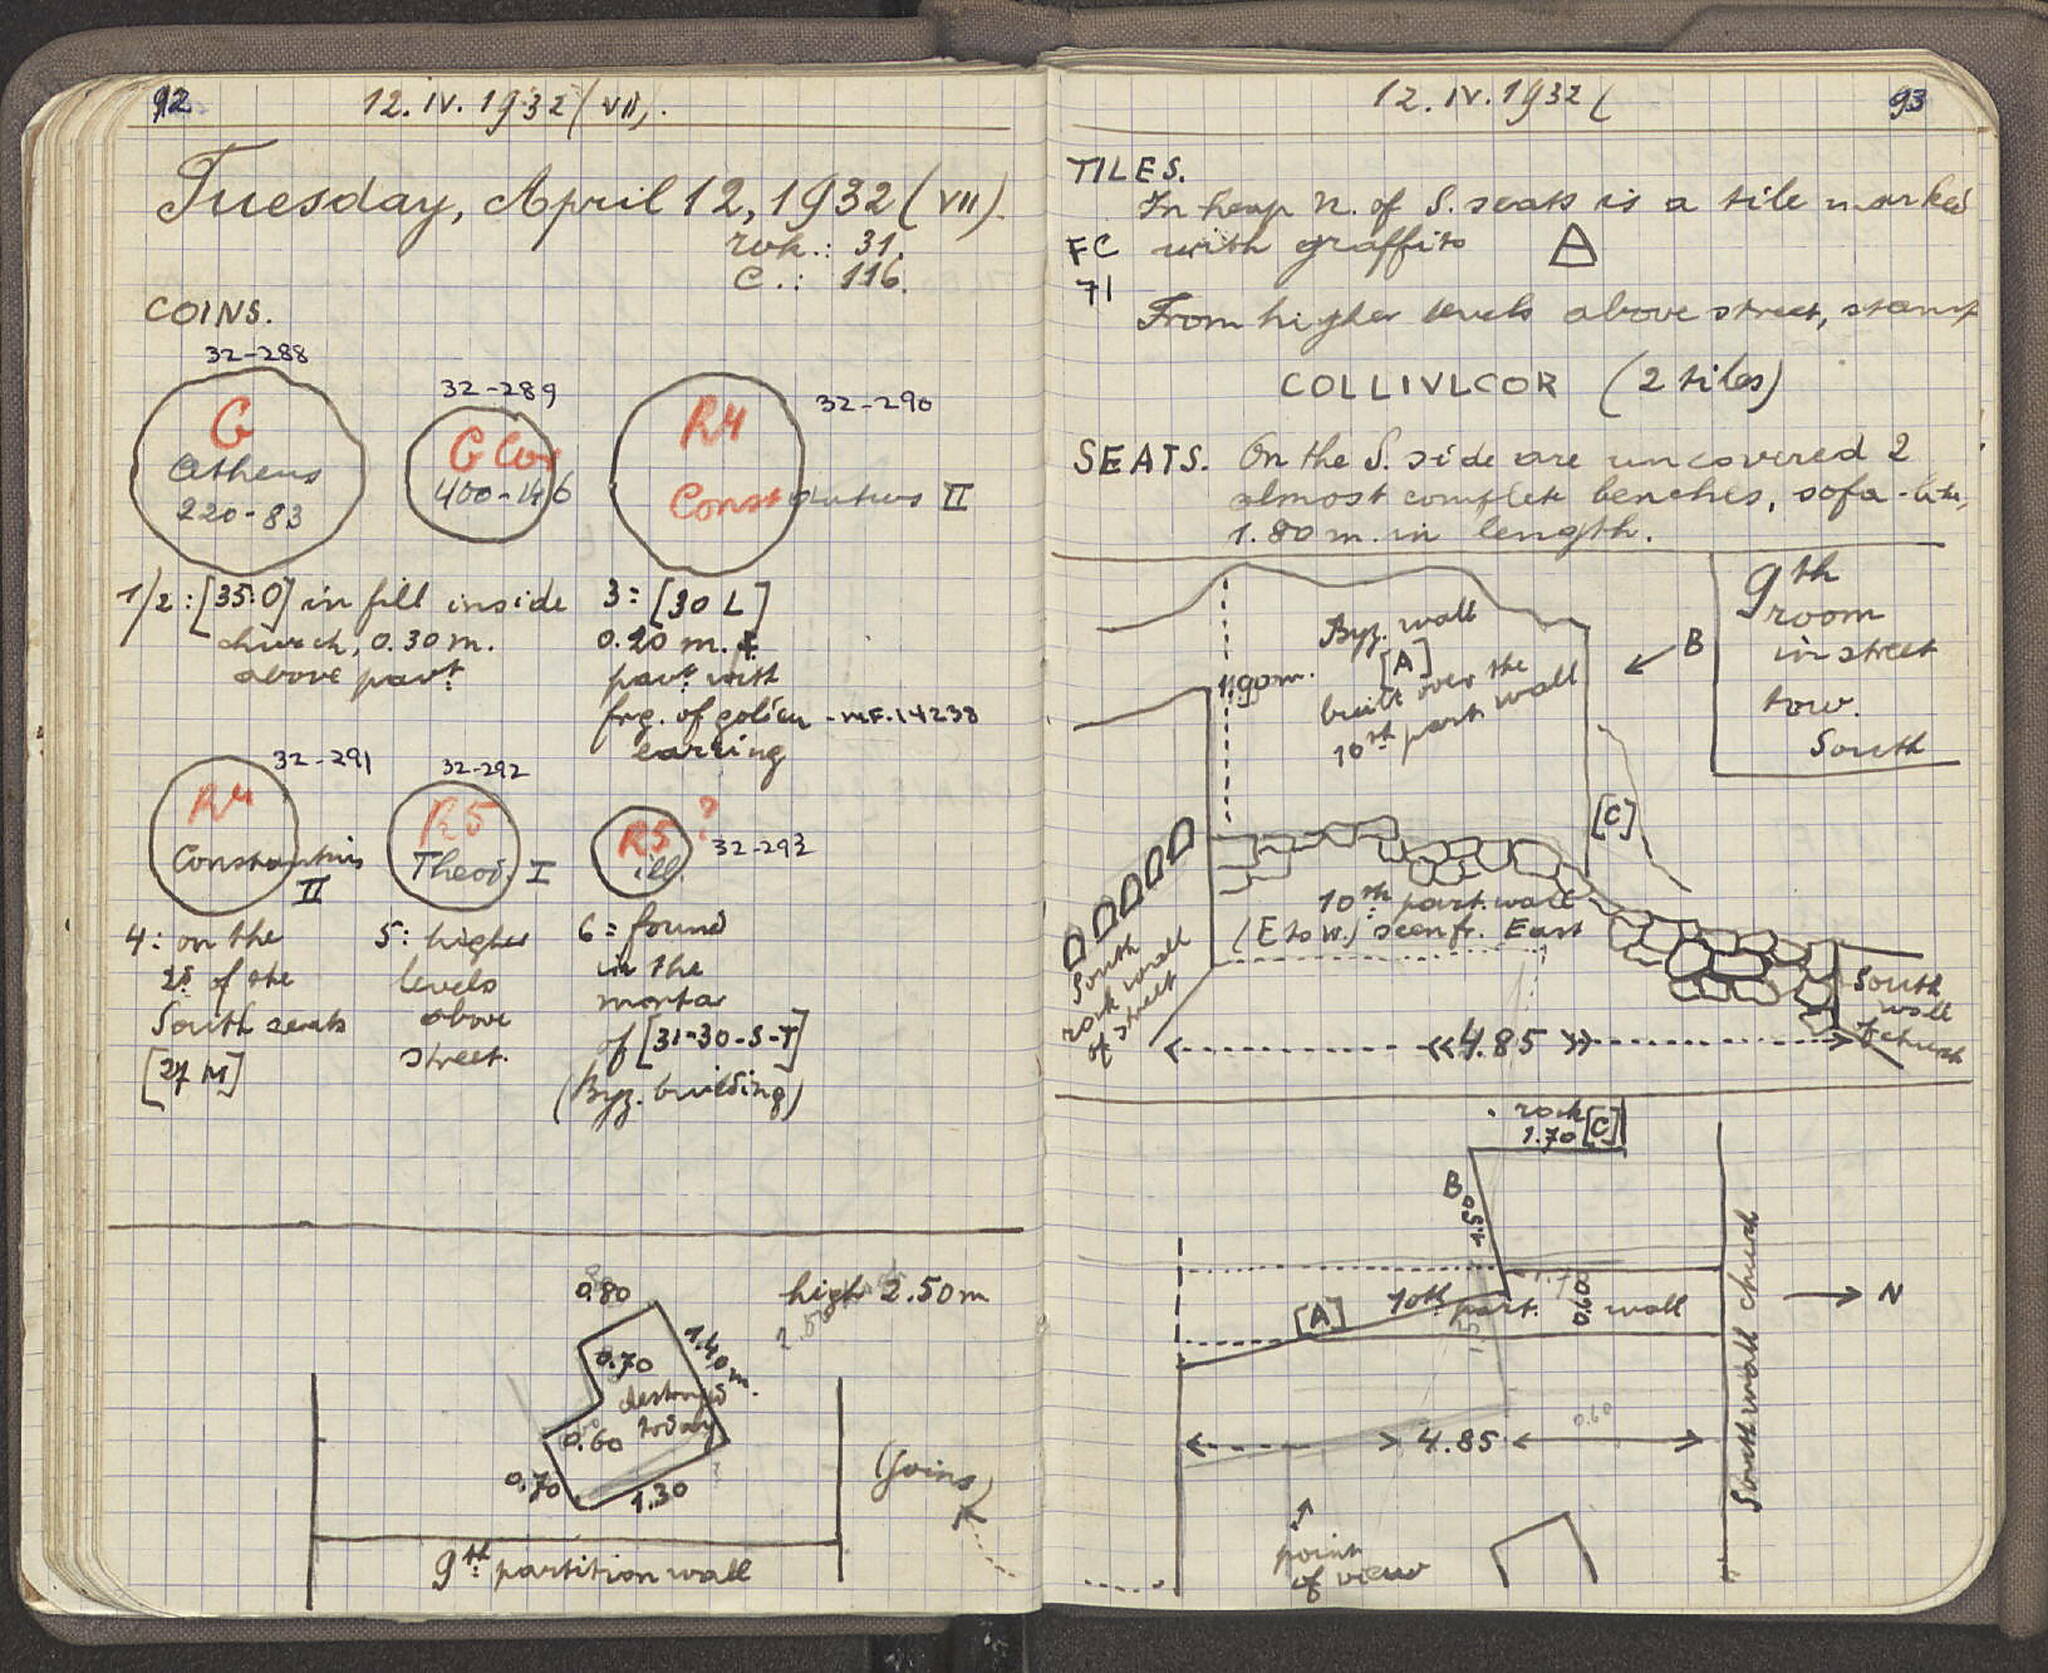 92
12.IV.1932 (VII).
Tuesday, April 12, 1932 (VII).
wk.: 31.
C.: 116.
COINS.
32-288
G
Athens
220-83
32-289
G Cor
400-146
32-290
R4
Constantius II
1/2: [35:O] in fill inside
church, 0.30 m.
above pavt.
3: [30 L]
0.20 m.
pavt. with
frg. of golden - MF.14238
earring
32-291
R4
Constantius
II
32-292
R5
Theod. I
R5 ?
ill.
32-293
4: on the
2d of the
South seats
[27 M]
5: higher
levels
above
street.
6: found
in the
mortar
of [31-30-S-T]
(Byz. building)
0.80
high 2.50 m
0.70
1.40 m.
destroyed
today
0.60
0.70
1.30
(joins)
9th partition wall
12.IV.1932 (
93
TILES.
In heap N. of S. seats is a tile marked
FC with graffito A
71
From higher levels above street, stamp
COLLIVLCOR (2 tiles)
SEATS. On the S. side are uncovered 2
almost complete benches, sofa-like,
1.80 m. in length.
9th
room
in street
tow.
South
B
1.90 m.
Byz. wall
[A]
built over the
10th part. wall
[C]
10th part. wall
(E to W.) seen fr. East
South
rock wall
of street
4.85
South
wall
of church
rock
1.70 [C]
B
1.50
[A]
10th part. wall
0.60
N
South wall church
4.85
0.60
point
of view